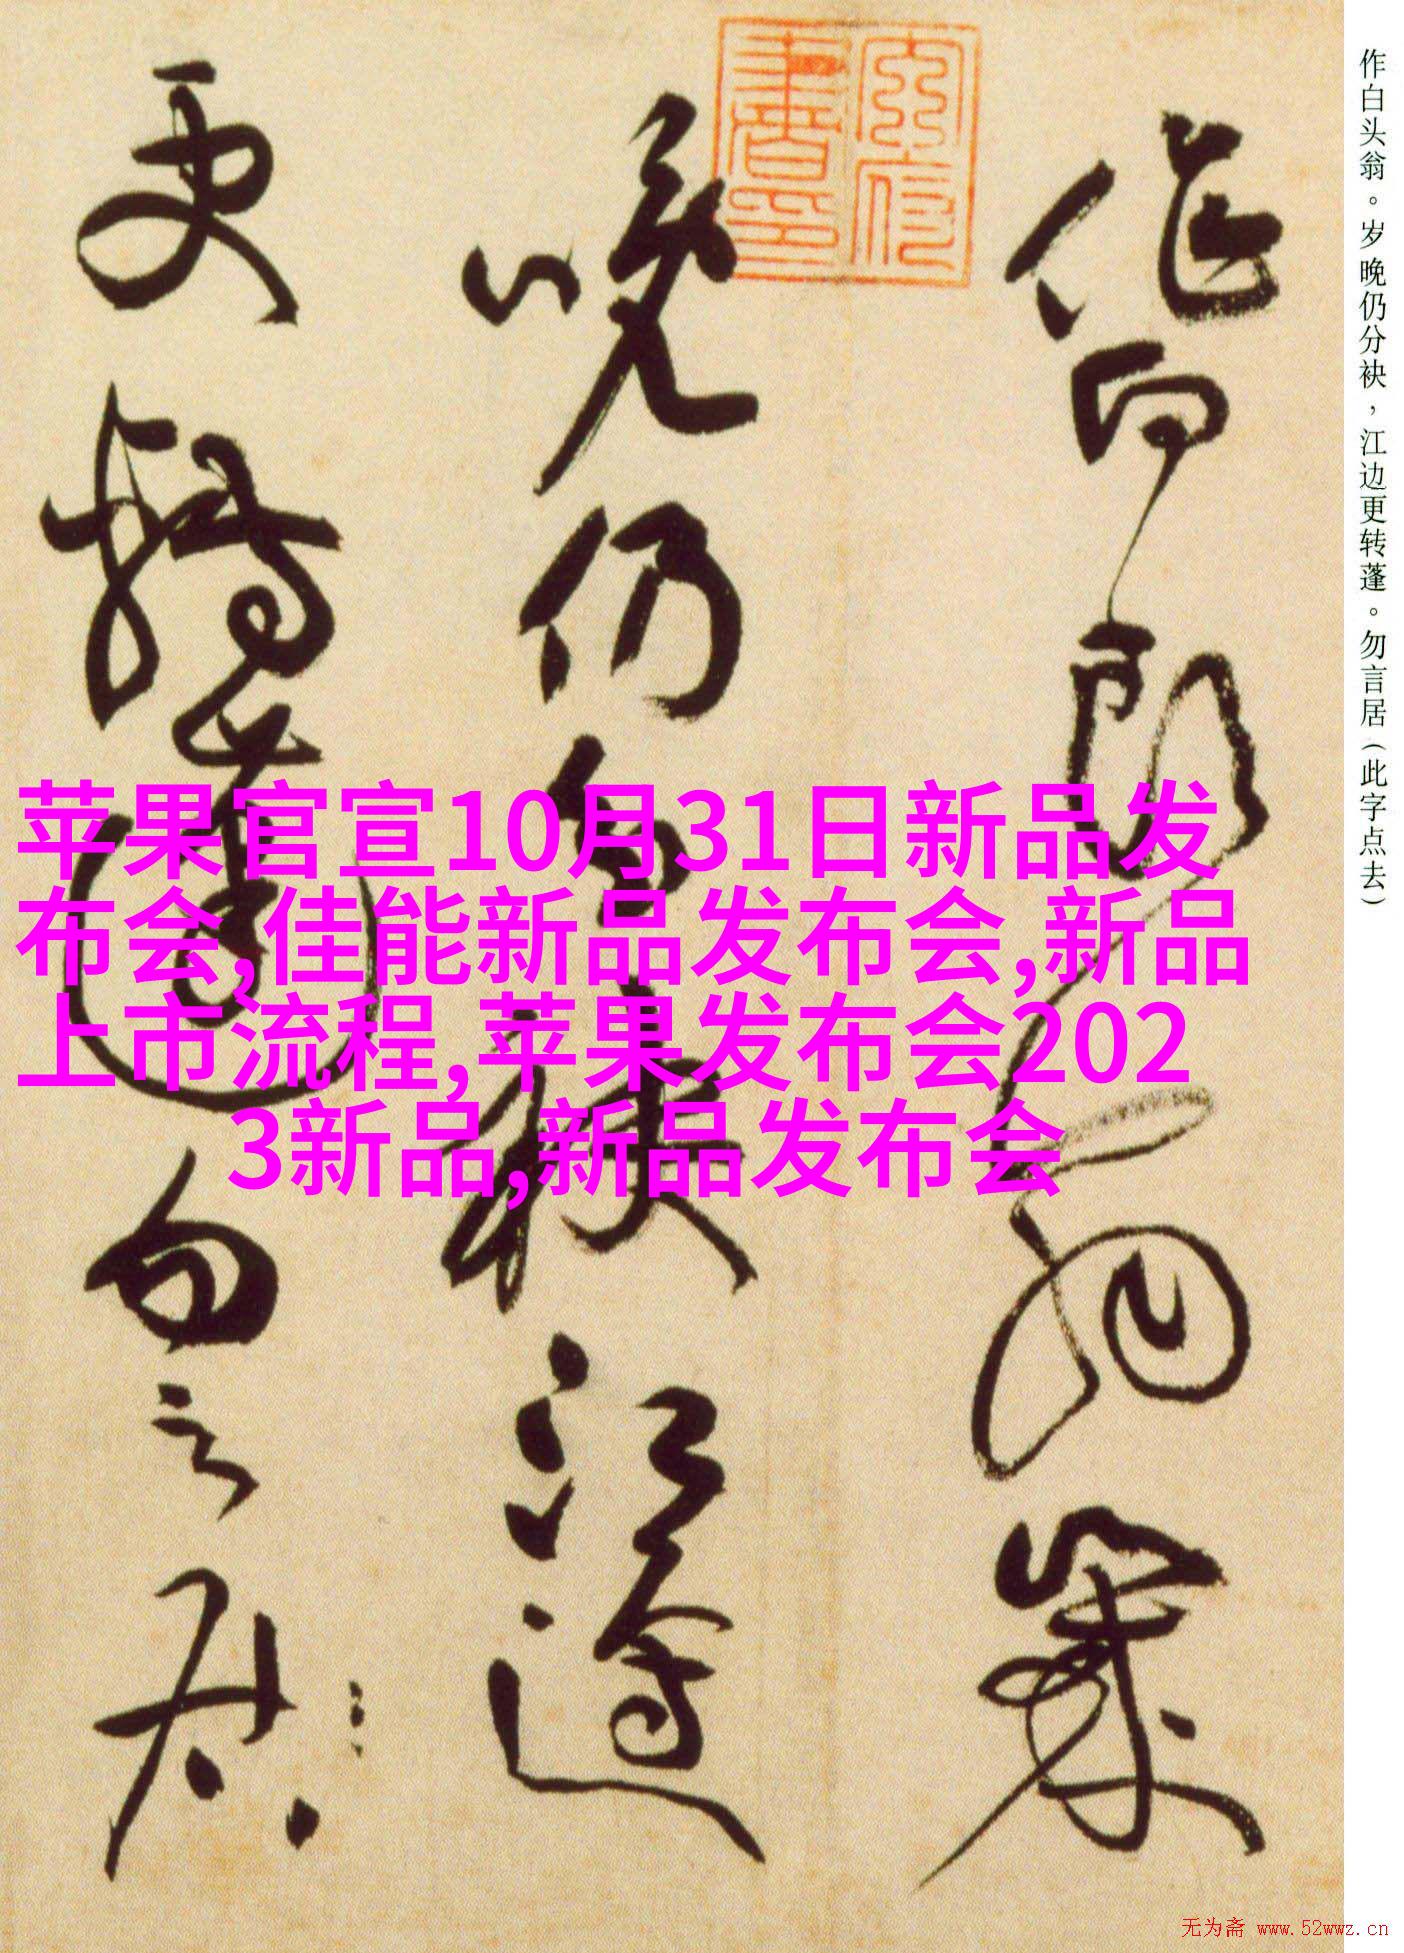 作白头翁。岁晚仍分袂，江边更转蓬。勿言居(此字点去)
作白头翁岁
晚仍分袂江边
更转蓬勿言居
苹果官宣10月31日新品发
布会,佳能新品发布会,新品
上市流程,苹果发布会202
3新品,新品发布会
无为斋 www.52wwz.cn